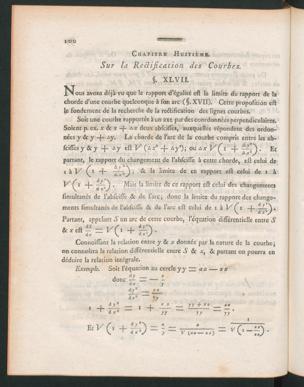 100
CHAPITRE HUITIÈME.
Sur la Rectification des Courbes.
§. XLVII.
Nous avons déjà vu que le rapport d'égalité est la limite du rapport de la
chorde d'une courbe quelconque à son arc (§. XVII). Cette proposition est
le fondement de la recherche de la rectification des lignes courbes.
Soit une courbe rapportée à un axe par des coordonnées perpendiculaires.
Soient p. ex. x & x + Δx deux abscisses, auxquelles répondent des ordon-
nées y & y + Δy. La chorde de l'arc de la courbe compris entre les ab-
scisses y & y + Δy est √(Δx² + Δy²); ou Δx √(1 + Δy²/Δx²). Et
partant, le rapport du changement de l'abscisse à cette chorde, est celui de
1 à √(1 + Δy²/Δx²); & la limite de ce rapport est celui de 1 à
√(1 + dy²/dx²). Mais la limite de ce rapport est celui des changements
simultanés de l'abscisse & de l'arc; donc la limite du rapport des change-
ments simultanés de l'abscisse & de l'arc est celui de 1 à √(1 + dy²/dx²).
Partant, appelant S un arc de cette courbe, l'équation différentielle entre S
& x est dS/dx = √(1 + dy²/dx²).
Connoissant la relation entre y & x donnée par la nature de la courbe;
on connoîtra la relation différentielle entre S & x, & partant on pourra en
déduire la relation intégrale.
Exemple. Soit l'équation au cercle yy = aa — xx
donc dy/dx = — x/y
dy²/dx² = xx/yy
1 + dy²/dx² = 1 + xx/yy = yy + xx/yy = aa/yy.
Et √(1 + dy²/dx²) = a/y = a/√(aa — xx) = 1/√(1 — xx/aa).